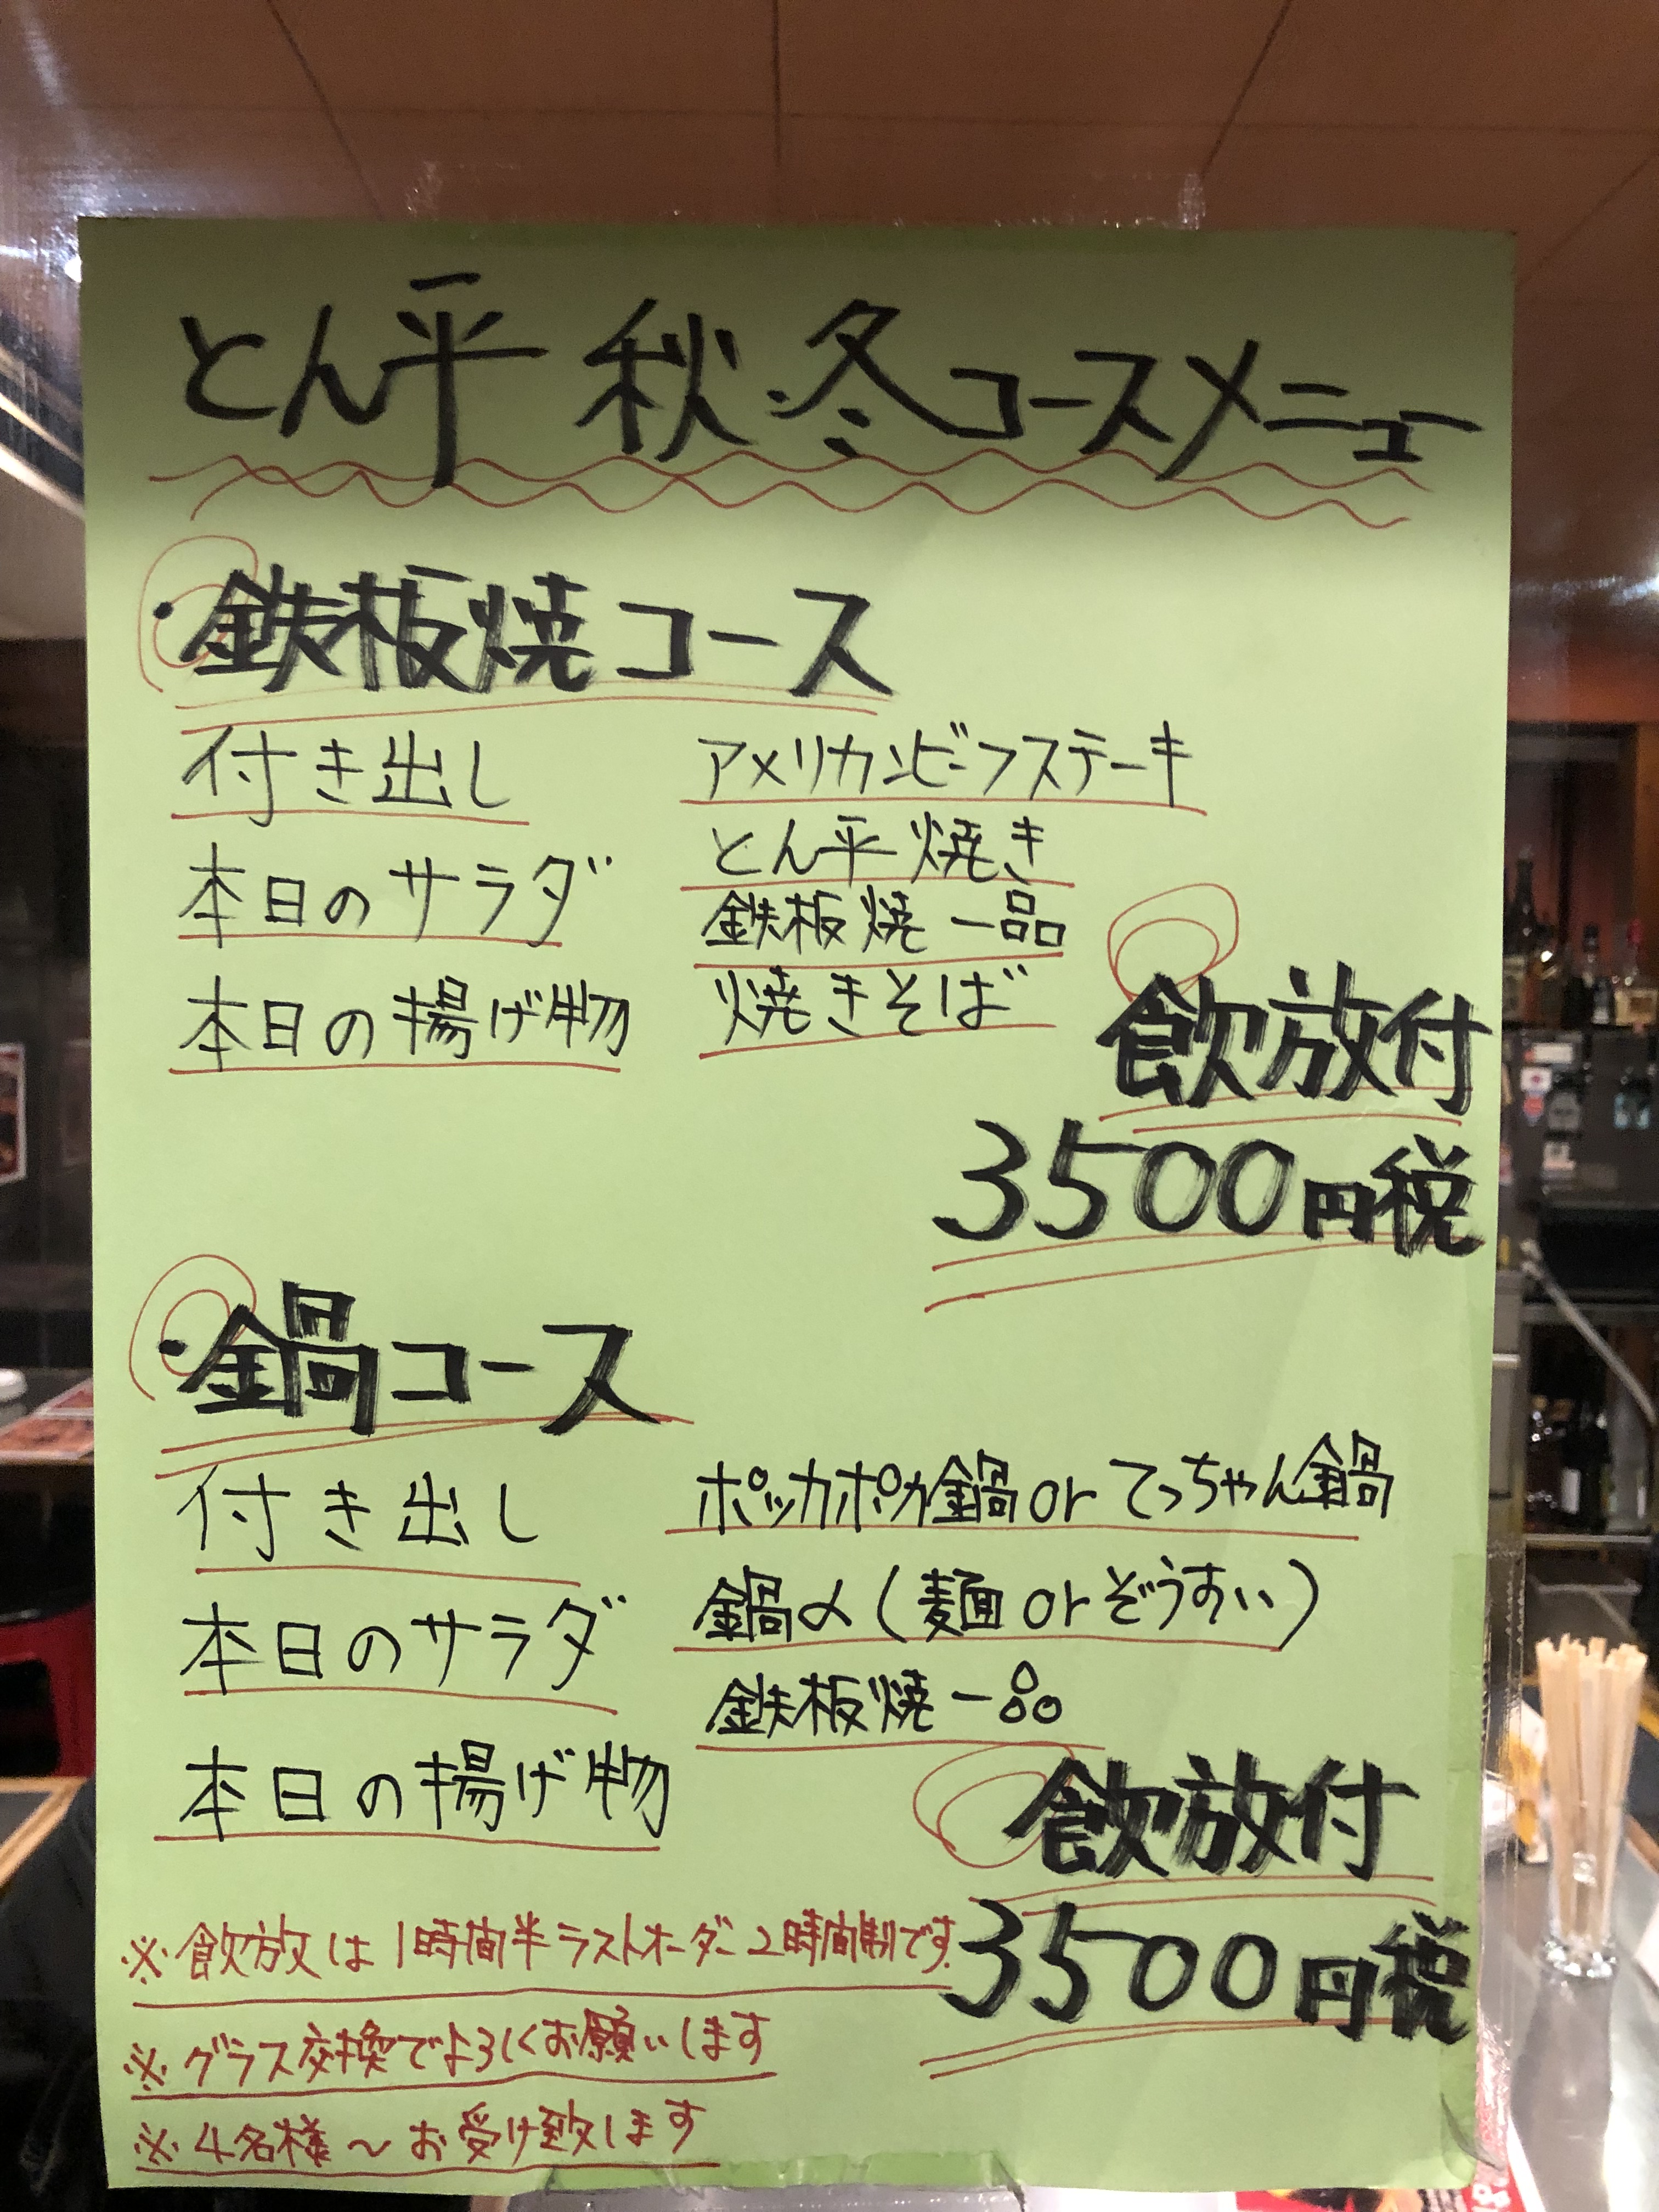 とん平 秋・冬コースメニュー
・鉄板焼コース
付き出し
本日のサラダ
本日の揚げ物
アメリカンビーフステーキ
とん平焼き
鉄板焼一品
焼きそば
飲放付
3500円税
・鍋コース
付き出し
本日のサラダ
本日の揚げ物
ポッカポカ鍋orてっちゃん鍋
鍋〆(麺orぞうすい)
鉄板焼一品
飲放付
3500円税
※飲放は1時間半ラストオーダー2時間制です。
※グラス交換でよろしくお願いします
※4名様〜お受け致します